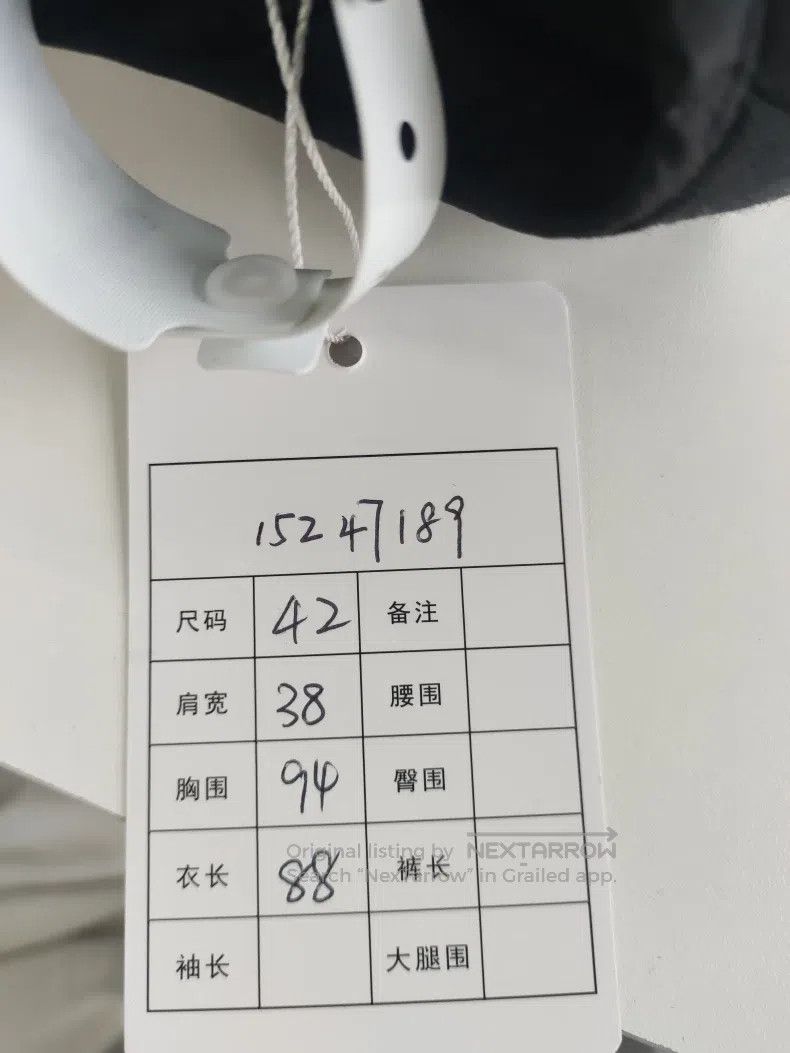 15247189
尺码 42 备注
肩宽 38 腰围
胸围 94 臀围
衣长 88 裤长
袖长 大腿围
Original listing by NEXTARROW
Search "NextArrow" in Grailed app.